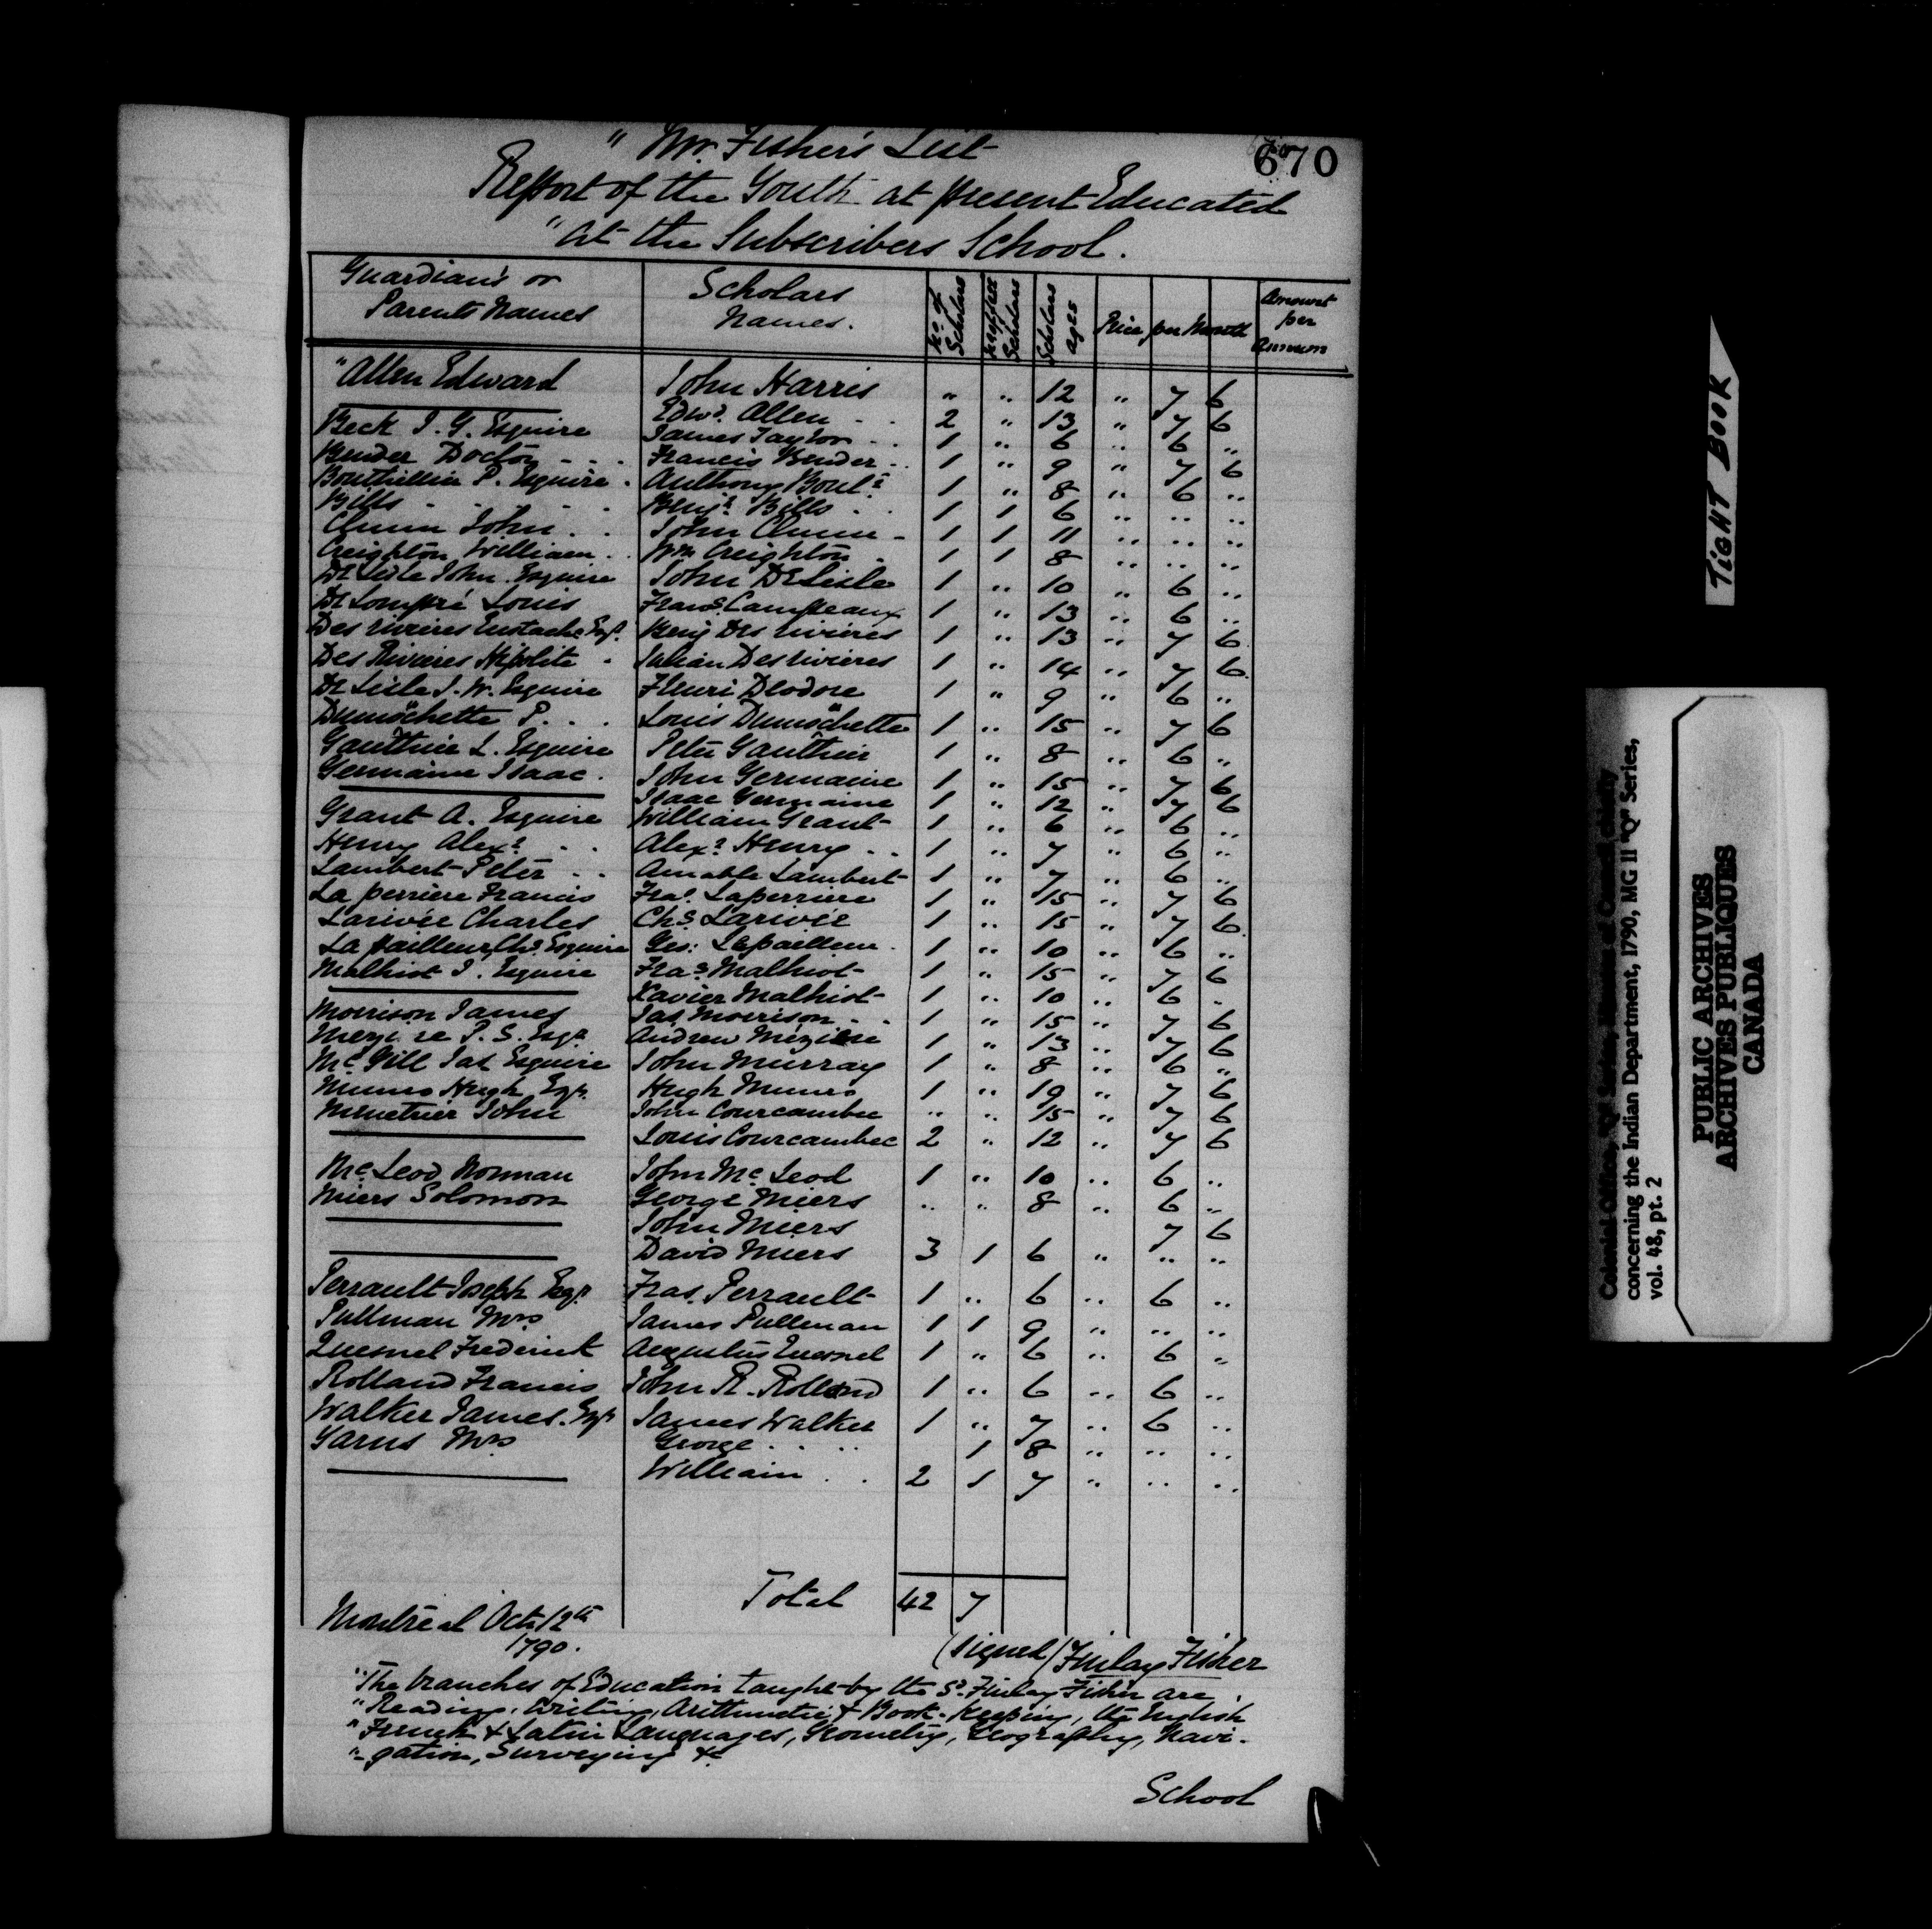 670
" Mr. Fisher's List
Report of the Youth at present Educated
"at the Subscribers School.
Guardian's or Parents Names | Scholars Names. | No. of Scholars | Scholars | Scholars ages | Price per Month | Amount per Annum
"Allen Edward | John Harris | " | " | 12 | " | 7 | 6
Edwd. Allen | 2 | " | 13 | " | 7 | 6
Beek J. G. Esquire | James Taylor | 1 | " | 6 | " | 6 | "
Bender Doctor | Francis Bender | 1 | " | 9 | " | 7 | 6
Bouthillier P. Esquire | Anthony Boutr. | 1 | " | 8 | " | 6 | "
Bills | Benjn. Bills | 1 | 1 | 6 | " | " | "
Clunn John | John Clunn | 1 | 1 | 11 | " | " | "
Creighton William | Wm Creighton | 1 | 1 | 8 | " | " | "
De Lisle John Esquire | John De Lisle | 1 | " | 10 | " | 6 | "
De Lompré Louis | Frans. Campeaux | 1 | " | 13 | " | 6 | "
Des rivieres Eustache Esqr. | Benj Des rivieres | 1 | " | 13 | " | 7 | 6
Des Rivieres Hipolite | Julian Des rivieres | 1 | " | 14 | " | 7 | 6
De Lisle J. W. Esquire | Henri Deodore | 1 | " | 9 | " | 6 | "
Dumöchette P. | Louis Dumöchette | 1 | " | 15 | " | 7 | 6
Gauthier L. Esquire | Peter Gauthier | 1 | " | 8 | " | 6 | "
Germaine Isaac. | John Germaine | 1 | " | 15 | " | 7 | 6
Isaac Germaine | 1 | " | 12 | " | 7 | 6
Grant A. Esquire | William Grant | 1 | " | 6 | " | 6 | "
Henry Alexr. | Alexr. Henry | 1 | " | 7 | " | 6 | "
Lambert Peter | Amable Lambert | 1 | " | 7 | " | 6 | "
La perriere Francis | Fras. Laperriere | 1 | " | 15 | " | 7 | 6
Larivée Charles | Chs. Larivée | 1 | " | 15 | " | 7 | 6
La pailleur Chs. Esquire | Geo: Lepailleur | 1 | " | 10 | " | 6 | "
Malhiot I. Esquire | Fras. Malhiot | 1 | " | 15 | " | 7 | 6
Xavier Malhiot | 1 | " | 10 | " | 6 | "
Morrison James | Jas. Morrison | 1 | " | 15 | " | 7 | 6
Mezi re P. S. Esqr. | Andrew Méziére | 1 | " | 13 | " | 7 | 6
Mc Gill Jas Esquire | John Murray | 1 | " | 8 | " | 6 | "
Munro Hugh Esqr. | Hugh Munro | 1 | " | 19 | " | 7 | 6
Menetrier John | John Courcambec | " | " | 15 | " | 7 | 6
Louis Courcambec | 2 | " | 12 | " | 7 | 6
Mc Leod Norman | John Mc Leod | 1 | " | 10 | " | 6 | "
Miers Solomon | George Miers | " | " | 8 | " | 6 | "
John Miers | 7 | 6
David Miers | 3 | 1 | 6 | " | " | "
Perrault Joseph Esqr. | Fras. Perrault | 1 | " | 6 | " | 6 | "
Pullman Mrs | James Pullman | 1 | 1 | 9 | " | " | "
Quesnel Frederick | Augustus Quesnel | 1 | " | 6 | " | 6 | "
Rolland Francis | John R. Rolland | 1 | " | 6 | " | 6 | "
Walker James. Esqr | James Walker | 1 | " | 7 | " | 6 | "
Yarns Mrs | George | 1 | 8 | " | " | "
William | 2 | 1 | 7 | " | " | "
Total | 42 | 7
Montreal Octr. 12th
1790.
(Signed) Finlay Fisher
"The branches of Education taught by the Sd. Finlay Fisher are
"Reading, writing, Arithmetic & Book-Keeping, the English
"French & Latin Languages, Geometry, Geography, Navi-
"-gation, Surveying &.
School
TIGHT BOOK
concerning the Indian Department, 1790, MG II "Q" Series,
vol. 48, pt. 2
PUBLIC ARCHIVES
ARCHIVES PUBLIQUES
CANADA